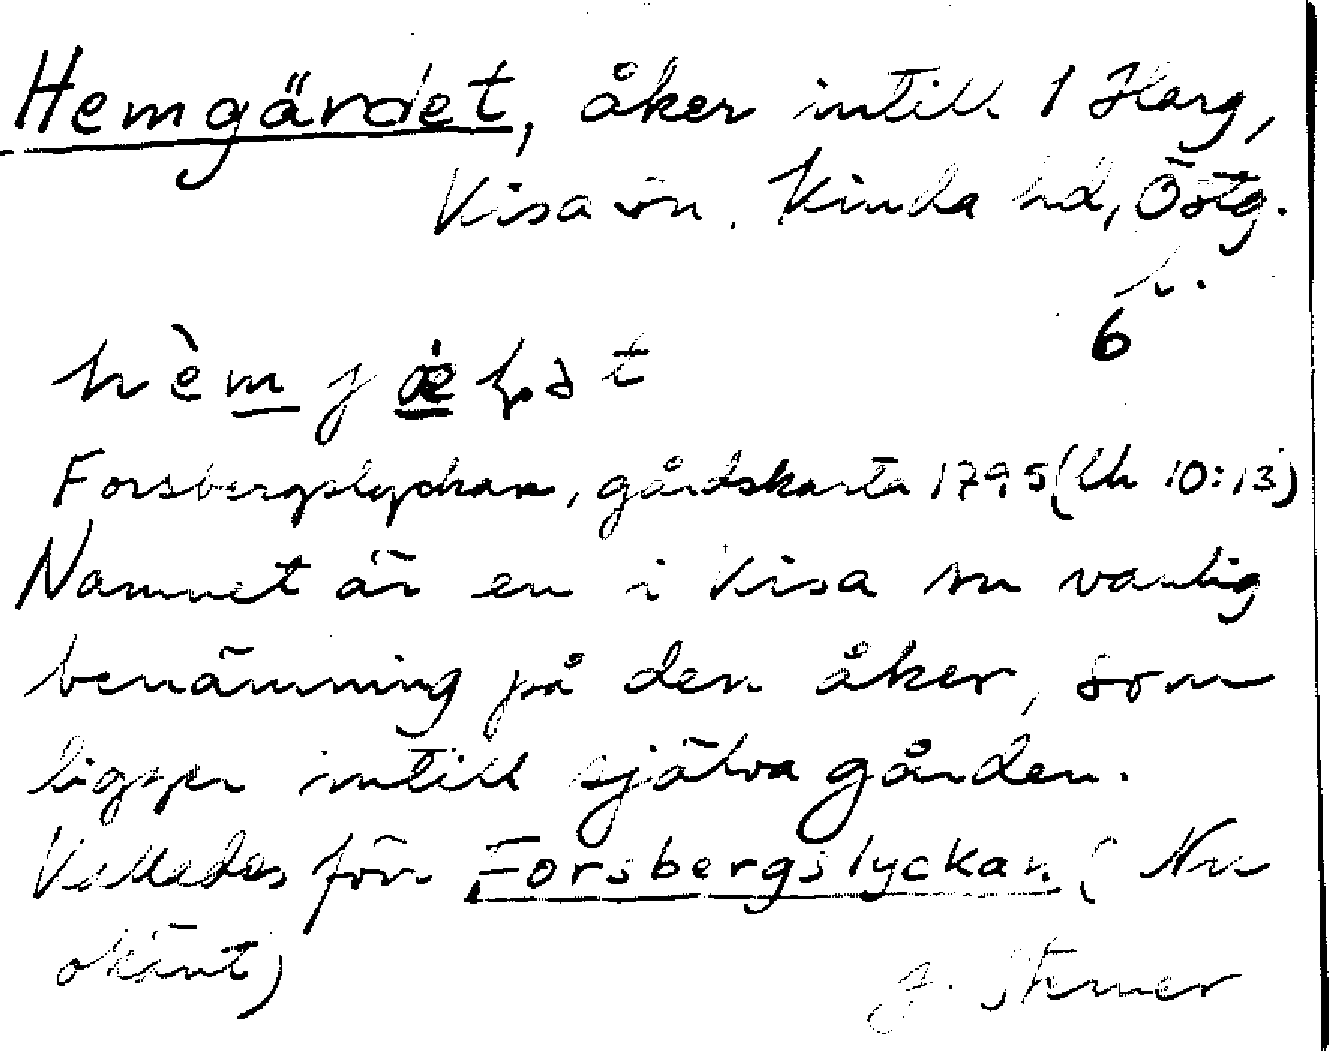 Hemgärdet, åker intill 1 Harg,
Kisa sn. Kinda hd, Östg.
l.
6
Forsbergslyckan, gårdskarta 1795 (Ch 10:13)
Namnet är en i Kisa sn vanlig
benämning på den åker, som
ligger intill själva gården.
Kallades förr Forsbergslyckan (Nu
okänt)
J.